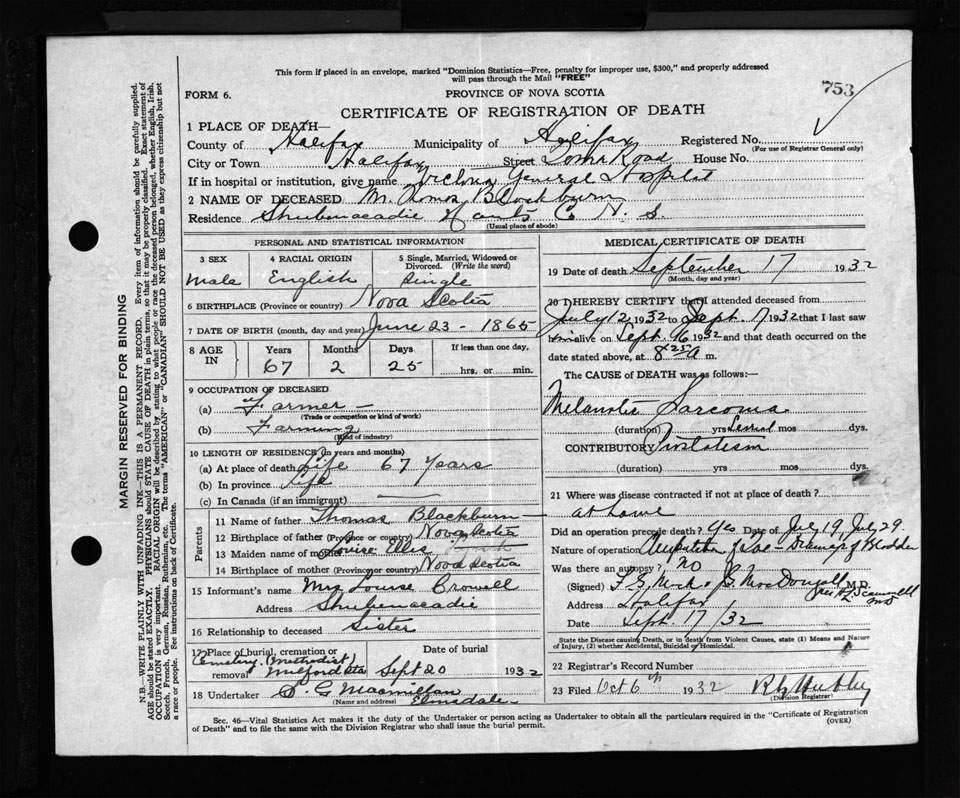 This form if placed in an envelope, marked "Dominion Statistics—Free, penalty for improper use, $300," and properly addressed
will pass through the Mail "FREE"
753
FORM 6.
PROVINCE OF NOVA SCOTIA
CERTIFICATE OF REGISTRATION OF DEATH
1 PLACE OF DEATH—
County of Halifax Municipality of Halifax Registered No.
(For use of Registrar General only)
City or Town Halifax Street Road House No.
If in hospital or institution, give name Victoria General Hospital
2 NAME OF DECEASED Blackburn
Residence Shubenacadie Hants Co N. S.
(Usual place of abode)
PERSONAL AND STATISTICAL INFORMATION
3 SEX
Male
4 RACIAL ORIGIN
English
5 Single, Married, Widowed or
Divorced. (Write the word)
Single
6 BIRTHPLACE (Province or country) Nova Scotia
7 DATE OF BIRTH (month, day and year) June 23 - 1865
8 AGE IN
Years Months Days If less than one day,
67 2 25 hrs. or min.
9 OCCUPATION OF DECEASED
(a) Farmer —
(Trade or occupation or kind of work)
(b) Farming
(Kind of industry)
10 LENGTH OF RESIDENCE (in years and months)
(a) At place of death Life 67 Years
(b) In province Life
(c) In Canada (if an immigrant) —
Parents
11 Name of father Thomas Blackburn —
12 Birthplace of father (Province or country) Nova Scotia
13 Maiden name of mother Louise Ellis
14 Birthplace of mother (Province or country) Nova Scotia
15 Informant's name Mrs Louise Crowell
Address Shubenacadie
16 Relationship to deceased Sister
17 Place of burial, cremation or Date of burial
Cemetery (Methodist)
removal Milford Sta Sept 20 1932
18 Undertaker S. G Macmillan
(Name and address) Elmsdale
MEDICAL CERTIFICATE OF DEATH
19 Date of death September 17 1932
(Month, day and year)
20 I HEREBY CERTIFY that I attended deceased from
July 12 1932 to Sept. 17 1932 that I last saw
him alive on Sept. 16 1932 and that death occurred on the
date stated above, at 8 25 A m.
The CAUSE of DEATH was as follows:—
Melanotic Sarcoma
(duration) yrs Several mos dys.
CONTRIBUTORY Prostatism
(duration) yrs mos dys.
21 Where was disease contracted if not at place of death?
at home
Did an operation precede death? Yes Date of July 19, July 29.
Nature of operation Drainage of Bladder
Was there an autopsy? no
(Signed) MacDougall M.D.
Address Halifax
Date Sept. 17/32
State the Disease causing Death, or in death from Violent Causes, state (1) Means and Nature
of Injury, (2) whether Accidental, Suicidal or Homicidal.
22 Registrar's Record Number
23 Filed Oct 6th 1932
(Division Registrar)
Sec. 46—Vital Statistics Act makes it the duty of the Undertaker or person acting as Undertaker to obtain all the particulars required in the "Certificate of Registration
of Death" and to file the same with the Division Registrar who shall issue the burial permit.
(OVER)
MARGIN RESERVED FOR BINDING
N.B.—WRITE PLAINLY WITH UNFADING INK—THIS IS A PERMANENT RECORD. Every item of information should be carefully supplied.
AGE should be stated EXACTLY. PHYSICIANS should STATE CAUSE OF DEATH in plain terms, so that it may be properly classified. Exact statement of
OCCUPATION is very important. RACIAL ORIGIN will be described by stating to what people or race the deceased person belonged, whether English, Irish,
Scotch, French, German, Russian, Ruthenian, etc. The terms "AMERICAN" or "CANADIAN" SHOULD NOT BE USED as they express citizenship but not
a race or people. See instructions on back of Certificate.